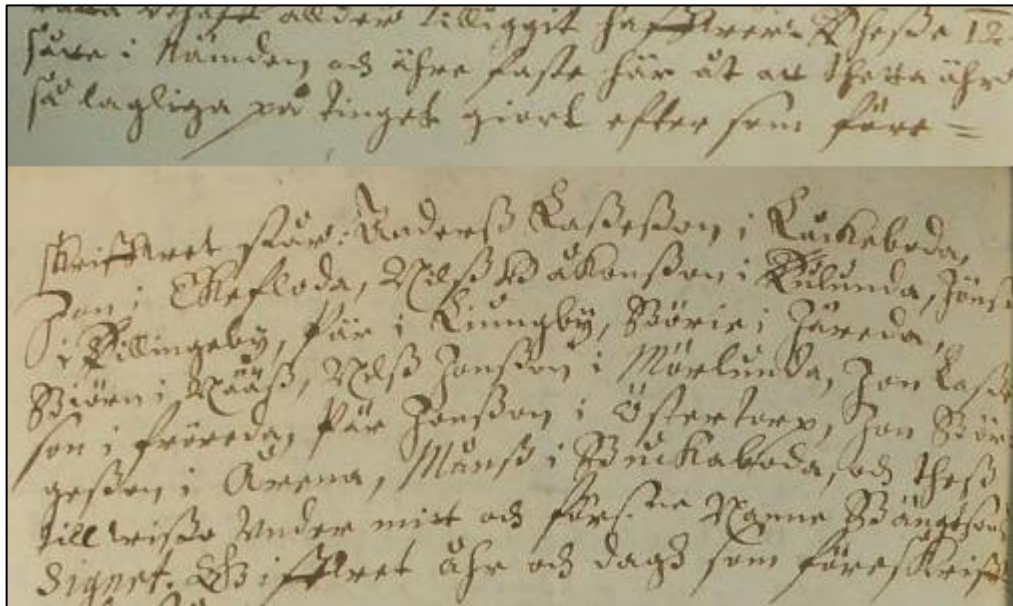 rätta allder tilliggit haffuer. Thesße 12
sutte i Nämden och ähre faste här åt at thetta ähr
så lagliga på Tinget giort efter som före =
skriffuet står. Anderß Laßeßon i Luckeboda,
Jon i Ekefloda, Nilß Håkonßon i Kulunda, Jönß
i Killingeby, Pär i Liungby, Börie i Järeda,
Biörn i Nääß, Nilß Jonßon i Mörlunda, Jon Laße
son i fröreda, Pär Jonßon i Östertorp, Jon Bör
geßon i Arena, Månß i Buckaboda, och theß
till wisße Vnder mit och förs:ne Nanne Bängtson
Signet. Giffuet åhr och dagh som föreskrifu